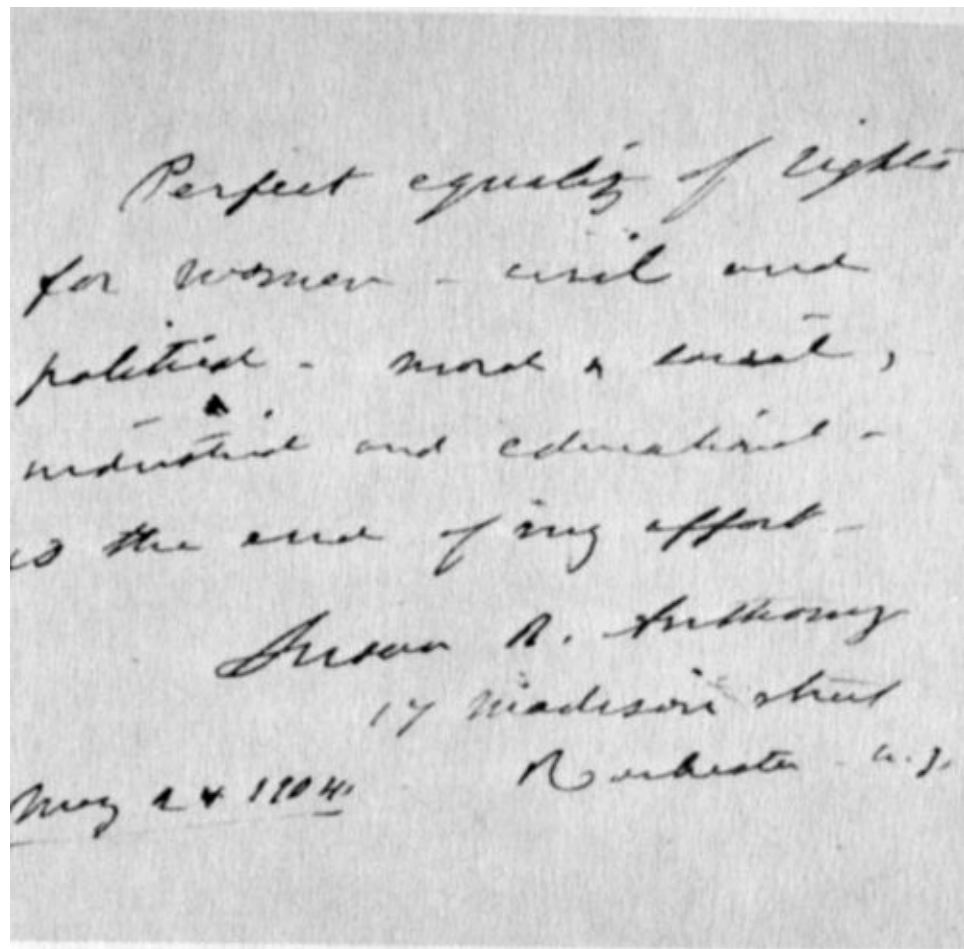 Perfect equality of rights
for women - civil and
political - moral & social,
industrial and educational -
is the end of my effort -
Susan B. Anthony
17 Madison street
Rochester - N.Y.
May 24 1904.